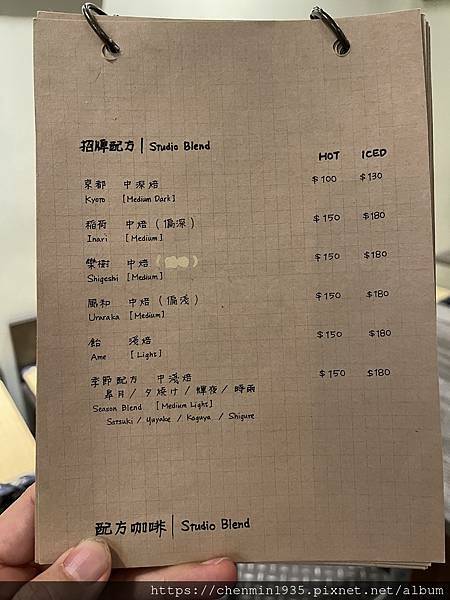 招牌配方 | Studio Blend
HOT ICED
京都 中深焙 $100 $130
Kyoto [Medium Dark]
稲荷 中焙 (偏深) $150 $180
Inari [Medium]
欒樹 中焙 $150 $180
Shigeshi [Medium]
風和 中焙 (偏淺) $150 $180
Uraraka [Medium]
飴 淺焙 $150 $180
Ame [Light]
季節配方 中淺焙 $150 $180
皐月 / 夕焼け / 輝夜 / 時雨
Season Blend [Medium Light]
Satsuki / Yuyake / Kaguya / Shigure
配方咖啡 | Studio Blend
https://chenmin1935.pixnet.net/album